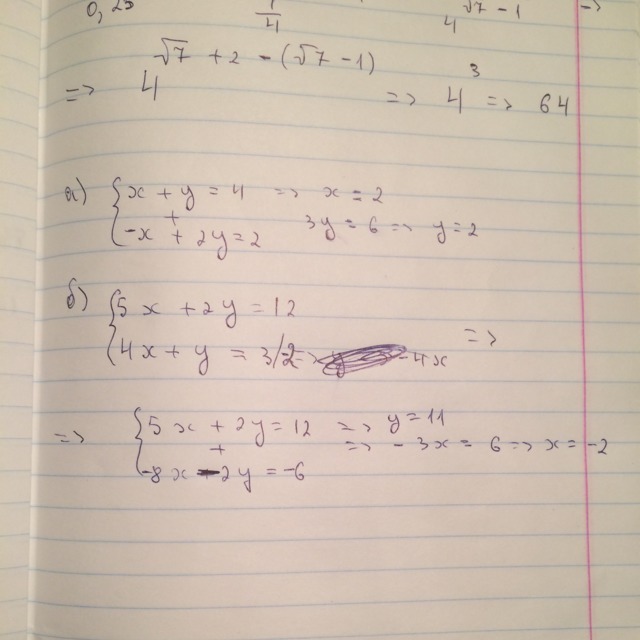 0,25 1/4 4^(√7 - 1) =>
=> 4^(√7 + 2 - (√7 - 1)) => 4^3 => 64
а) { x + y = 4 => x = 2
+
-x + 2y = 2 3y = 6 => y = 2
б) { 5x + 2y = 12
4x + y = 3/2 => -4x =>
=> { 5x + 2y = 12 => y = 11
+ => -3x = 6 => x = -2
-8x - 2y = -6